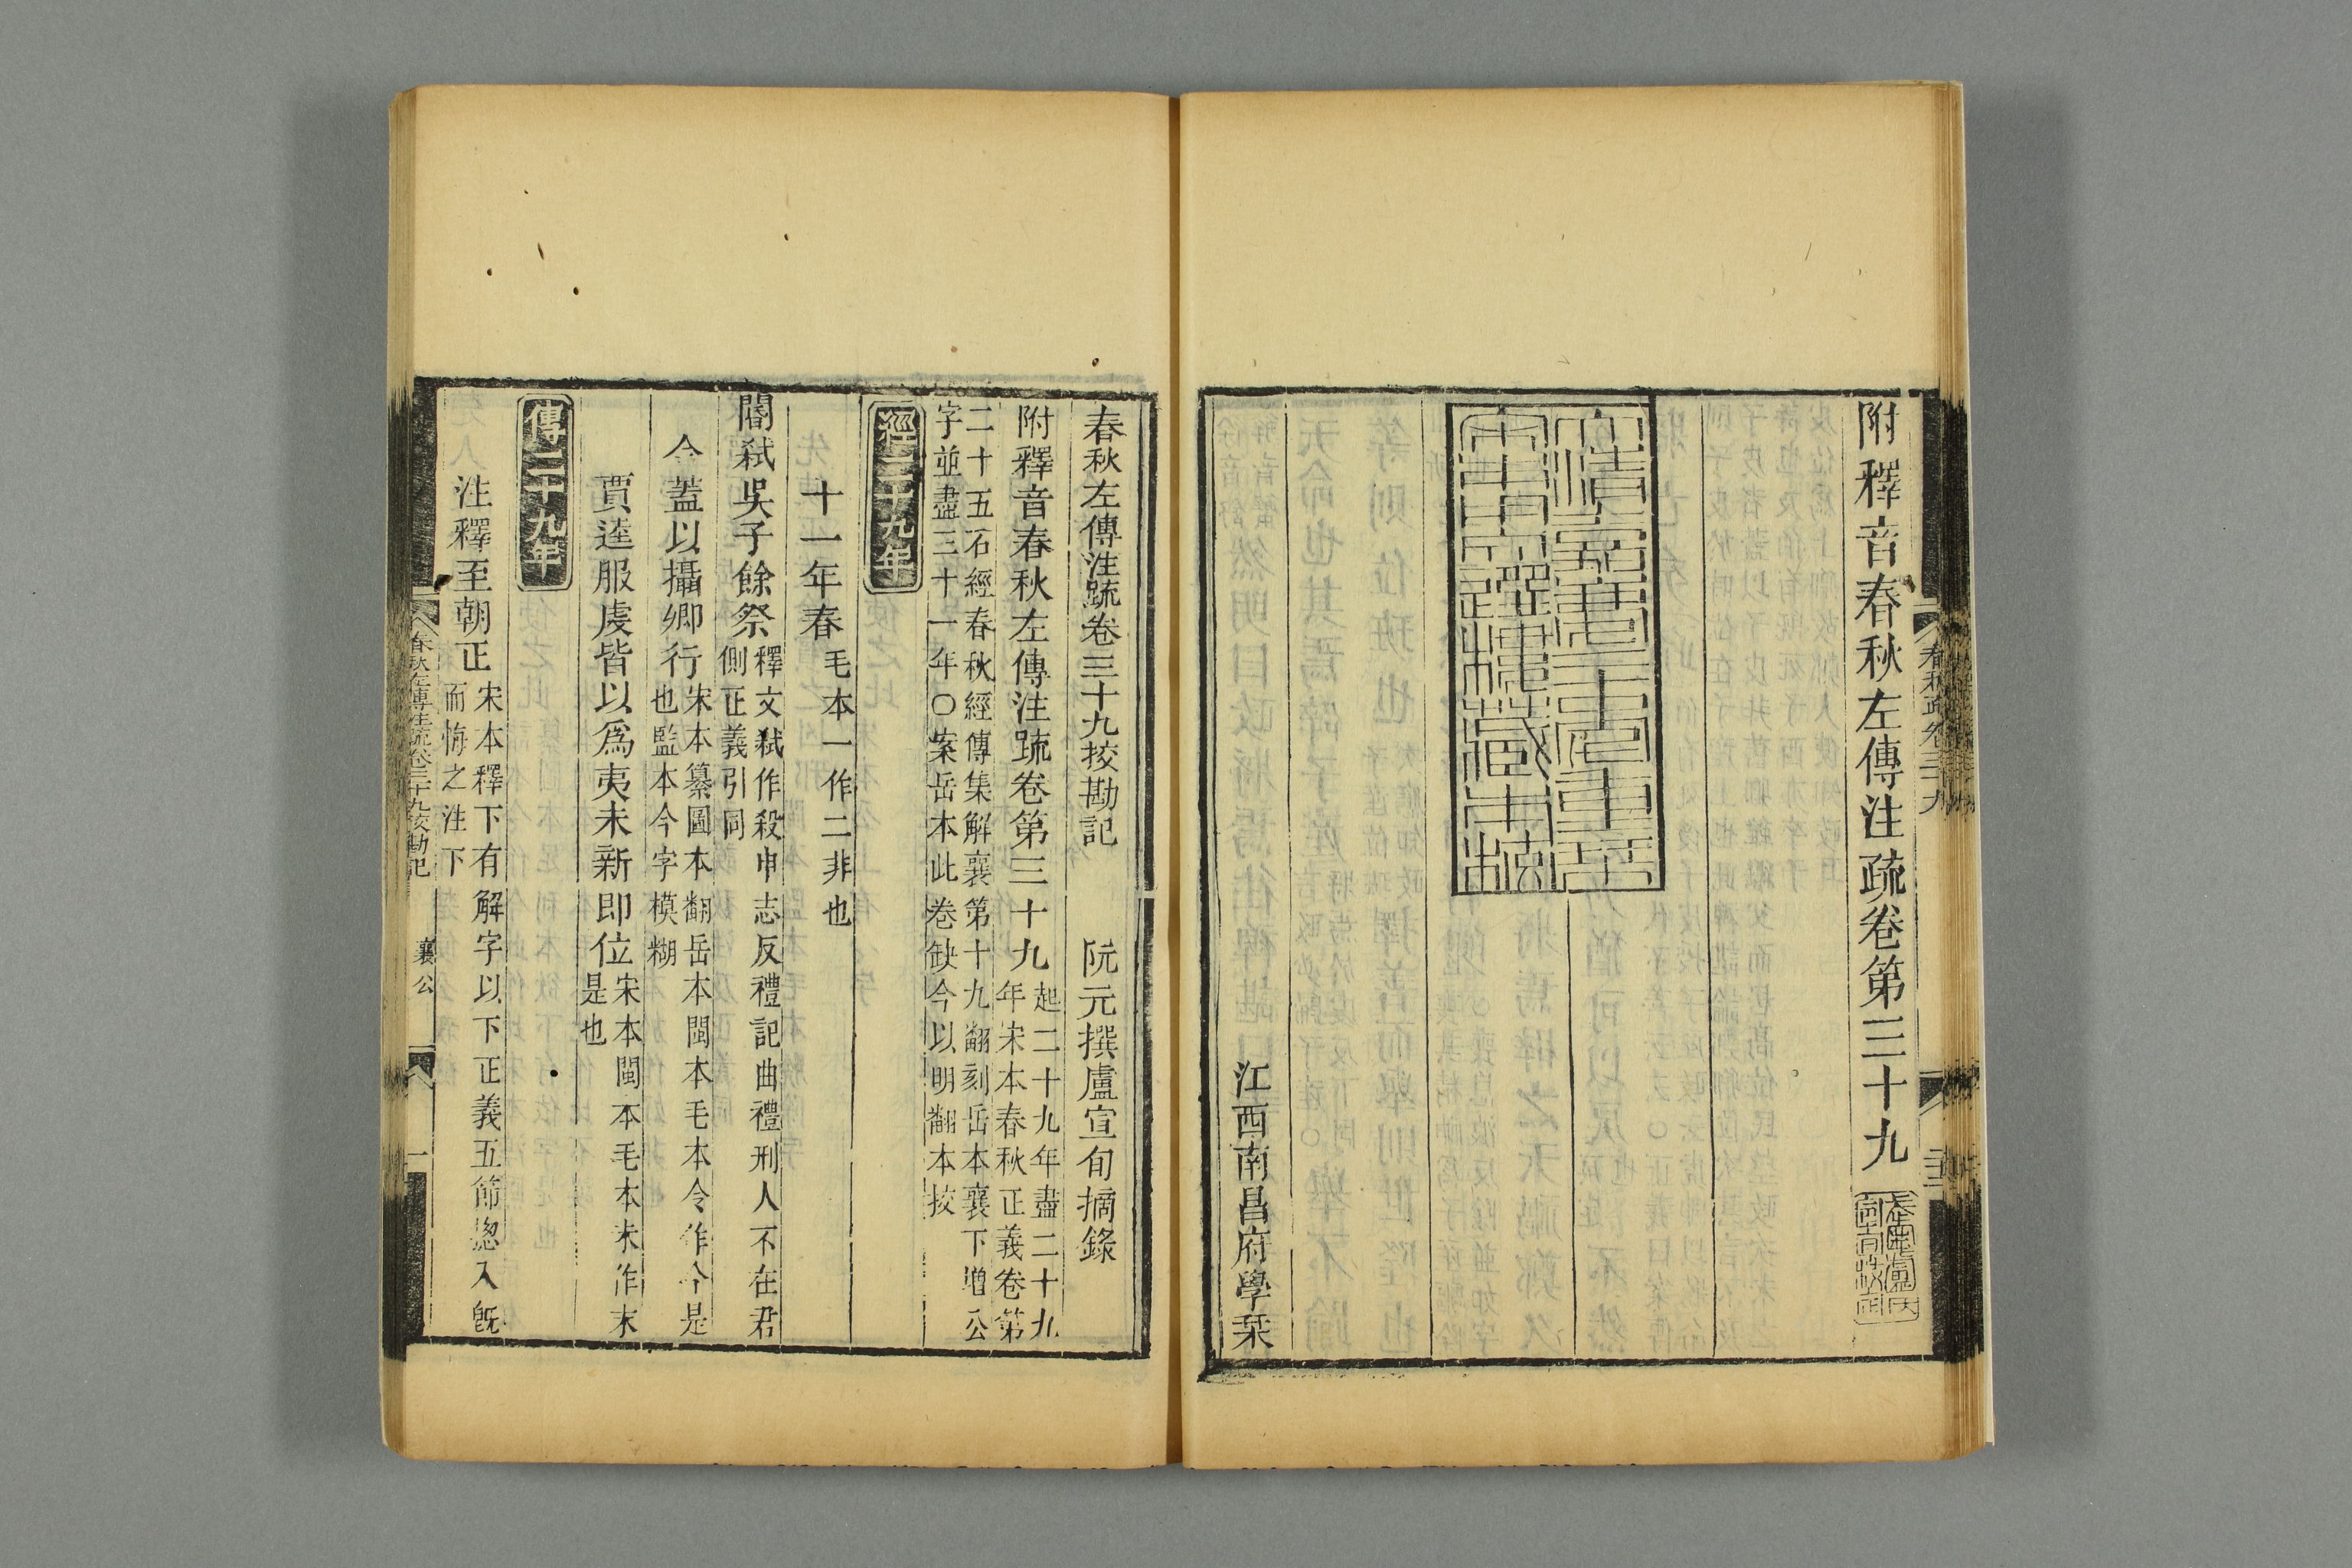 附釋音春秋左傳注疏卷第三十九
江西南昌府學栞
春秋左傳注疏卷三十九挍勘記　阮元撰盧宣旬摘錄
附釋音春秋左傳注疏卷第三十九
起二十九年盡二十九
年宋本春秋正義卷第
二十五石經春秋經傳集解襄第十九翻刻岳本襄下增公
字並盡三十一年〇案岳本此卷缺今以明翻本挍
經二十九年
十一年春　毛本一作二非也
閽弒吳子餘祭
釋文弒作殺申志反禮記曲禮刑人不在君
側正義引同
今蓋以攝卿行
宋本纂圖本翻岳本閩本毛本令作今是
也監本今字模糊
賈逵服虔皆以爲夷未新即位
宋本閩本毛本未作末
是也
傳二十九年
注釋至朝正
宋本釋下有解字以下正義五節揔入旣
而悔之注下
春秋左傳注疏卷三十九挍勘記　襄公　一